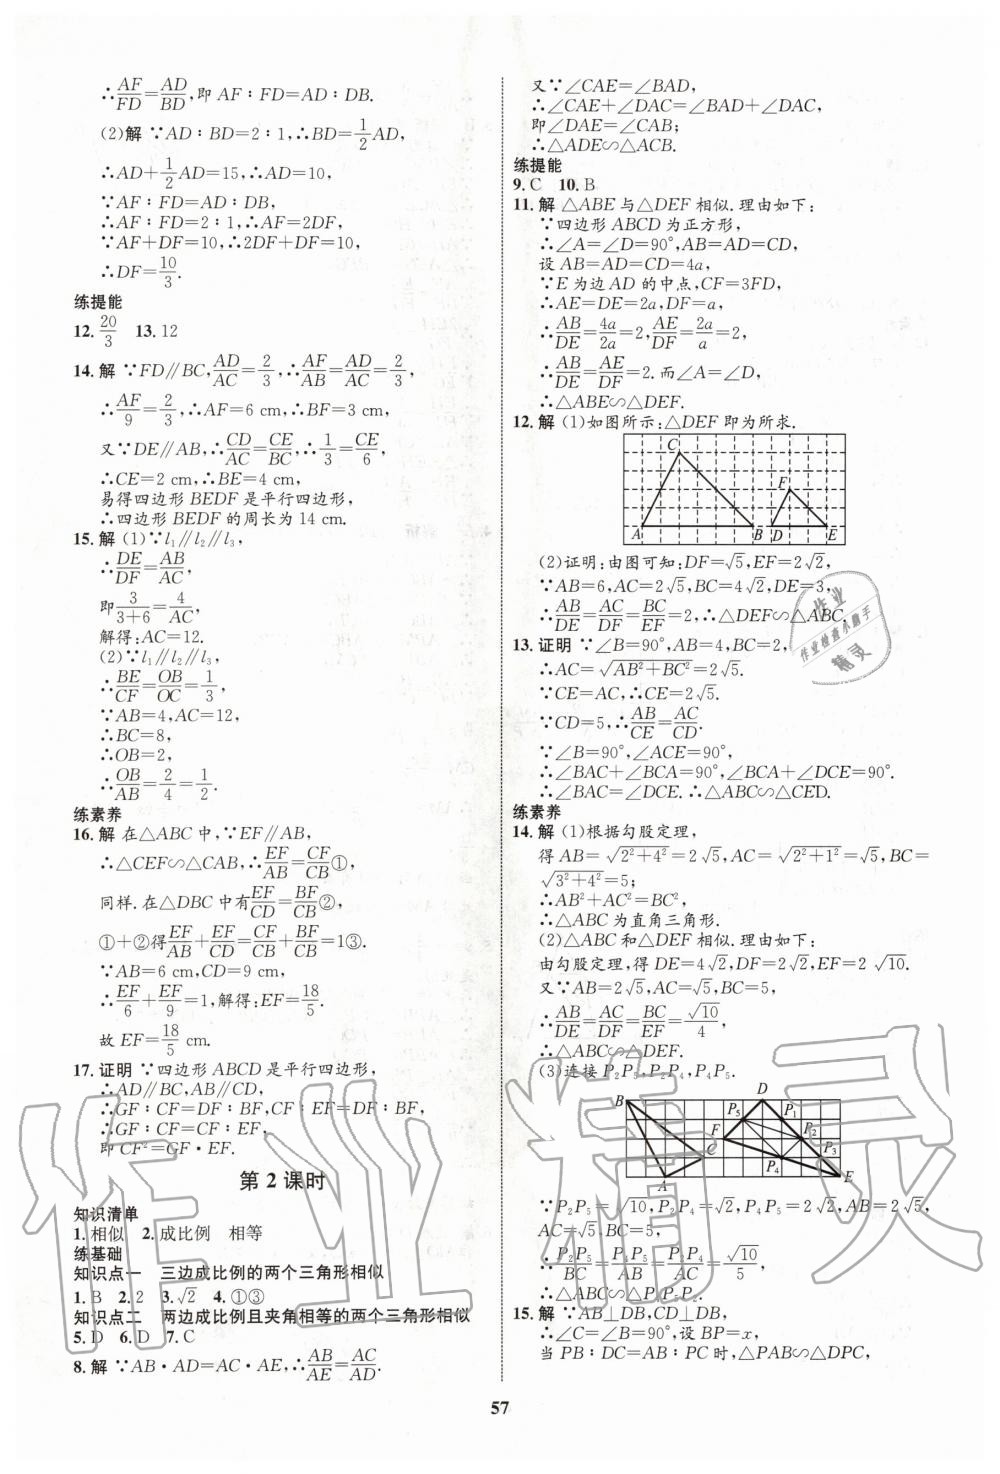 ∴AF/FD=AD/BD,即 AF∶FD=AD∶DB.
(2)解 ∵AD∶BD=2∶1,∴BD=1/2AD,
∴AD+1/2AD=15,∴AD=10,
∵AF∶FD=AD∶DB,
∴AF∶FD=2∶1,∴AF=2DF,
∵AF+DF=10,∴2DF+DF=10,
∴DF=10/3.
练提能
12.20/3 13.12
14.解 ∵FD∥BC,AD/AC=2/3,∴AF/AB=AD/AC=2/3,
∴AF/9=2/3,∴AF=6 cm,∴BF=3 cm,
又∵DE∥AB,∴CD/AC=CE/BC,∴1/3=CE/6,
∴CE=2 cm,∴BE=4 cm,
易得四边形 BEDF 是平行四边形,
∴四边形 BEDF 的周长为 14 cm.
15.解 (1)∵l₁∥l₂∥l₃,
∴DE/DF=AB/AC,
即3/(3+6)=4/AC,
解得:AC=12.
(2)∵l₁∥l₂∥l₃,
∴BE/CF=OB/OC=1/3,
∵AB=4,AC=12,
∴BC=8,
∴OB=2,
∴OB/AB=2/4=1/2.
练素养
16.解 在△ABC 中,∵EF∥AB,
∴△CEF∽△CAB,∴EF/AB=CF/CB①,
同样.在△DBC 中有EF/CD=BF/CB②,
①+②得EF/AB+EF/CD=CF/CB+BF/CB=1③.
∵AB=6 cm,CD=9 cm,
∴EF/6+EF/9=1,解得:EF=18/5.
故 EF=18/5 cm.
17.证明 ∵四边形 ABCD 是平行四边形,
∴AD∥BC,AB∥CD,
∴GF∶CF=DF∶BF,CF∶EF=DF∶BF,
∴GF∶CF=CF∶EF,
即 CF²=GF·EF.
第 2 课时
知识清单
1.相似 2.成比例 相等
练基础
知识点一 三边成比例的两个三角形相似
1.B 2.2 3.√2 4.①③
知识点二 两边成比例且夹角相等的两个三角形相似
5.D 6.D 7.C
8.解 ∵AB·AD=AC·AE,∴AB/AE=AC/AD.
又∵∠CAE=∠BAD,
∴∠CAE+∠DAC=∠BAD+∠DAC,
即∠DAE=∠CAB;
∴△ADE∽△ACB.
练提能
9.C 10.B
11.解 △ABE 与△DEF 相似.理由如下:
∵四边形 ABCD 为正方形,
∴∠A=∠D=90°,AB=AD=CD,
设 AB=AD=CD=4a,
∵E 为边 AD 的中点,CF=3FD,
∴AE=DE=2a,DF=a,
∴AB/DE=4a/2a=2,AE/DF=2a/a=2,
∴AB/DE=AE/DF=2.而∠A=∠D,
∴△ABE∽△DEF.
12.解 (1)如图所示:△DEF 即为所求.
C
F
A B D E
(2)证明:由图可知:DF=√5,EF=2√2,
∵AB=6,AC=2√5,BC=4√2,DE=3,
∴AB/DE=AC/DF=BC/EF=2,∴△DEF∽△ABC.
13.证明 ∵∠B=90°,AB=4,BC=2,
∴AC=√(AB²+BC²)=2√5.
∵CE=AC,∴CE=2√5.
∵CD=5,∴AB/CE=AC/CD.
∵∠B=90°,∠ACE=90°,
∴∠BAC+∠BCA=90°,∠BCA+∠DCE=90°.
∴∠BAC=∠DCE.∴△ABC∽△CED.
练素养
14.解 (1)根据勾股定理,
得 AB=√(2²+4²)=2√5,AC=√(2²+1²)=√5,BC=
√(3²+4²)=5;
∴AB²+AC²=BC²,
∴△ABC 为直角三角形.
(2)△ABC 和△DEF 相似.理由如下:
由勾股定理,得 DE=4√2,DF=2√2,EF=2√10.
又∵AB=2√5,AC=√5,BC=5,
∴AB/DE=AC/DF=BC/EF=√10/4,
∴△ABC∽△DEF.
(3)连接 P₂P₅,P₂P₄,P₄P₅.
B D
P₅ P₁
F P₂
C P₄ P₃
A E
∵P₂P₅=√10,P₂P₄=√2,P₄P₅=2√2,AB=2√5,
AC=√5,BC=5,
∴P₂P₅/BC=P₄P₅/AB=P₂P₄/AC=√10/5,
∴△ABC∽△P₄P₅P₂.
15.解 ∵AB⊥DB,CD⊥DB,
∴∠C=∠B=90°,设 BP=x,
当 PB∶DC=AB∶PC 时,△PAB∽△DPC,
57
作业
作业检查小助手
精灵
作业精灵